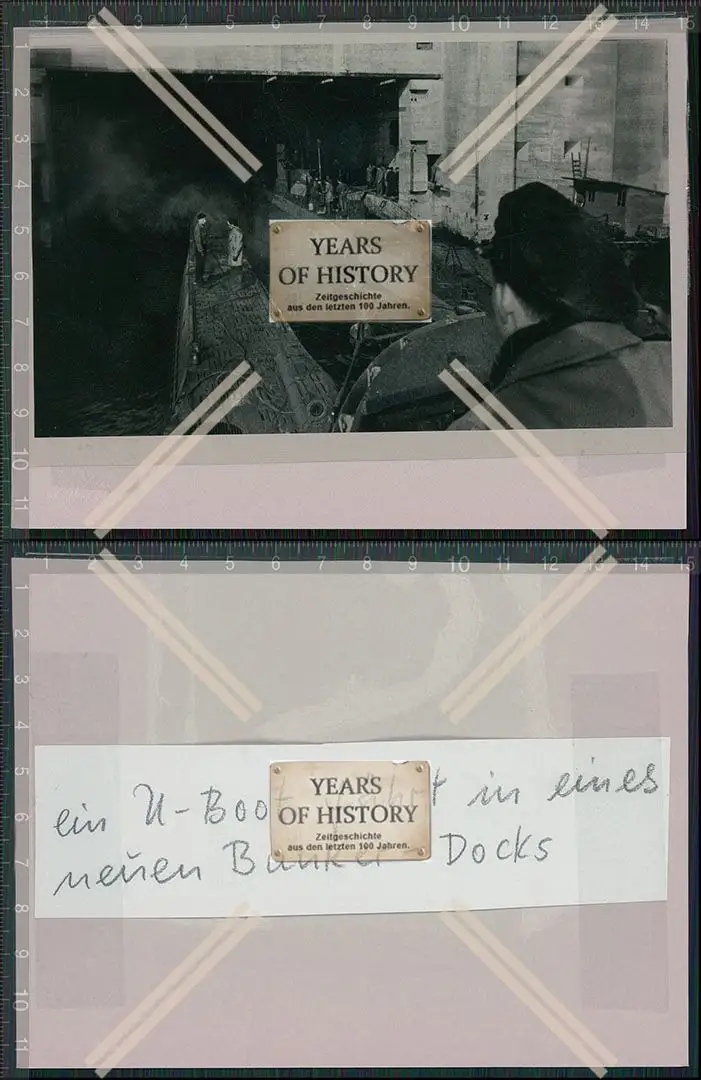 1 2 3 4 5 6 7 8 9 10 11 12 13 14 15
1
2
3
4
5
6
7
8
9
10
11
YEARS
OF HISTORY
Zeitgeschichte
aus den letzten 100 Jahren.
1 2 3 4 5 6 7 8 9 10 11 12 13 14 15
1
2
3
4
5
6
7
8
9
10
11
ein U-Boot fährt in eines
neuen Bunker-Docks
YEARS
OF HISTORY
Zeitgeschichte
aus den letzten 100 Jahren.